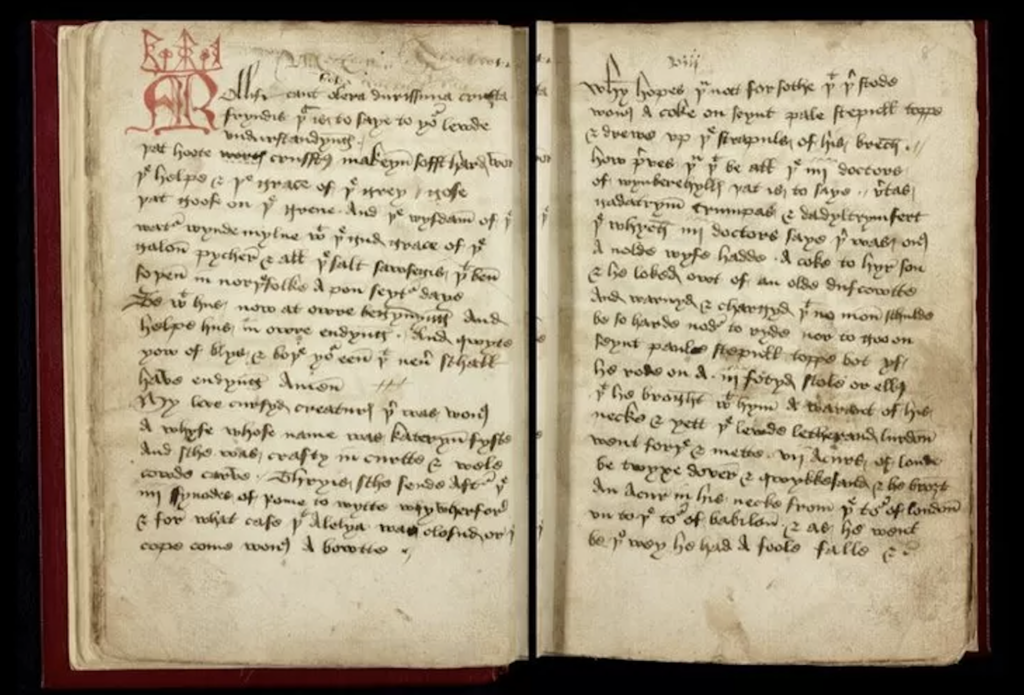 Mollifi cant olera durissima crusta
fryndis þt is to saye to yor lewde
undurstandyng
þat hoote crusstis makeyn sofft hard
þe helpe & þe grace of þe grey gose
þat goose on þe grene And þe wysdam of þe
watr wynde mylne wt þe gud grace of þe
galon pycher & all þe salt sawsegis þt ben
sopen in norþefolke A pon seytr days
Be wt hus now at owre begynnyng And
helpe hus in owre endyng And qwyte
yow of blys & boþe yor een þt nevr schall
have endyng Amen
My leve cursyd creaturs þr was wons
A whyfe whose name was kateryn fyste
And sche was crafty in curtte & wele
cowde carve Thryis sche sende Aftr þe
iiij synodes of rome to wytte why wherford
& for what case þt Alelya was closud or þe
cope come wons A bowtte
viij
Why hopes þu not for sothe þt þr stode
wons A coke on seynt pale stepull toppe
& drewe vp þe strapuls of his brech
how prves þu þt be all þe iiij doctors
of wynberehylly þat is to saye vrtas
gadatrym trumpas & dadyltrymsert
þe whech iiij doctors saye þr was ons
A nolde wyfe hadde A coke to hyr son
& he loked owt of an olde dufcowtte
And warnyd & chargyd þt no mon schulde
be so harde nodr to ryde nor to goo on
seynt paule stepull toppe bot yf
he rode on A iij fotyd stole or ells
þt he broght wt hym A warant of his
necke & yett þe lewde letherand lurdon
went forþe & mette vij Acurs of londe
be twyxe dover & qwykkesand & he broʒt
An Acur in his necke from þe tor of london
vn to þe tor of babilon & as he went
be þe wey he had A foole falle &